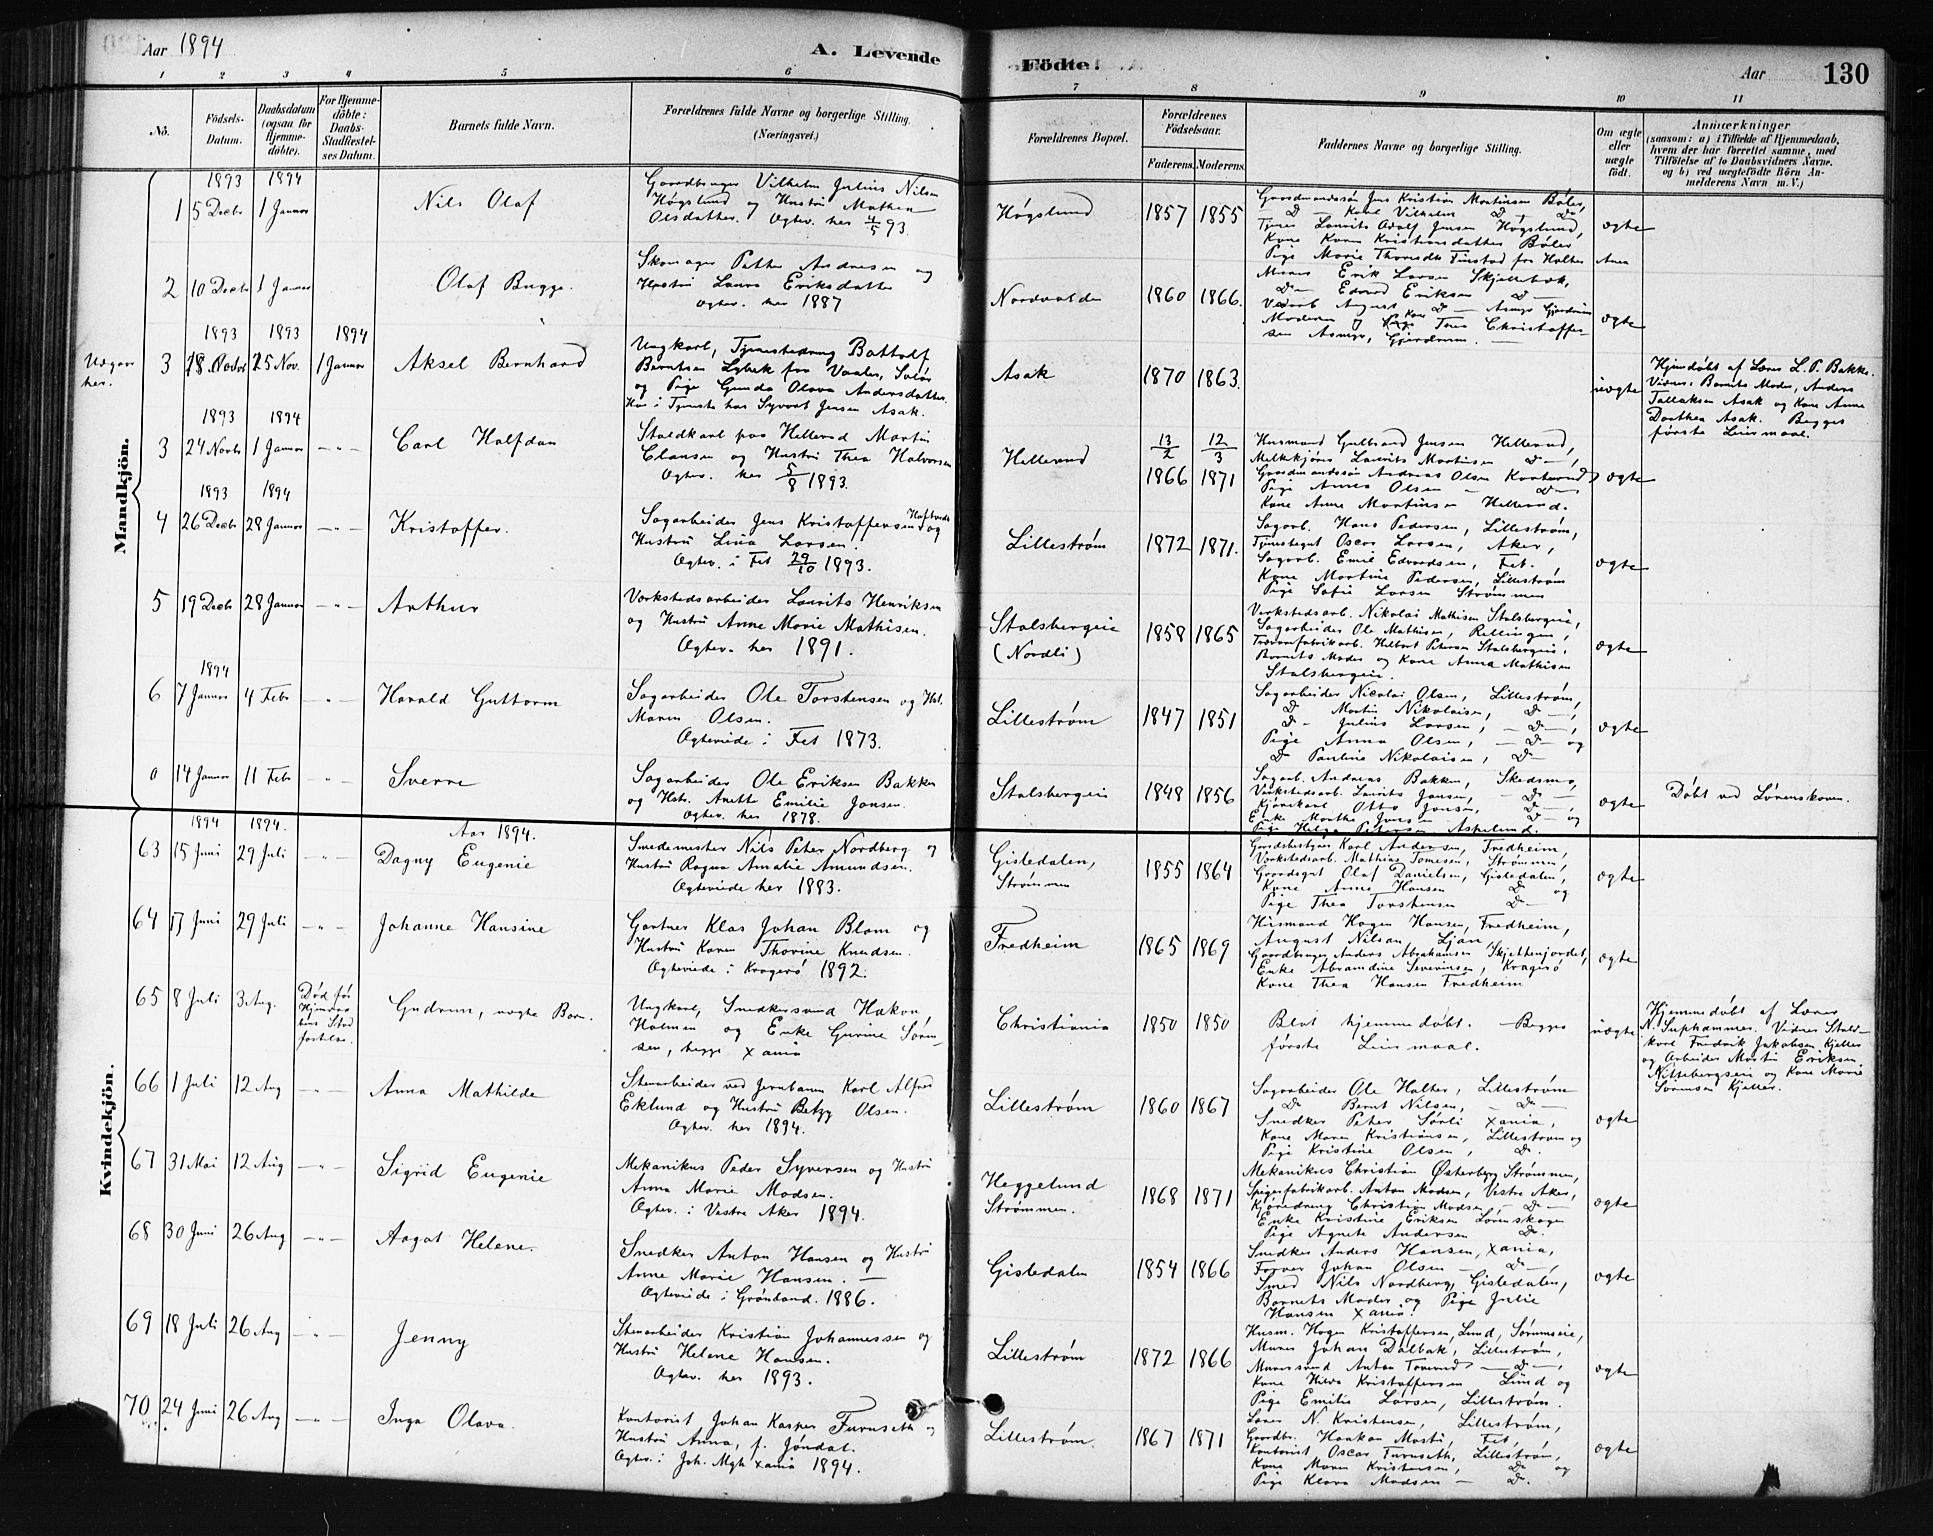 Aar 1894 A. Levende Födte. Aar 130
1 2 3 4 5 6 7 8 9 10 11
Nô. Födsels-Datum. Daabsdatum (ogsaa för Hjemme-döbte). For Hjemme-döbte: Daabs-Stadfæstel-ses Datum. Barnets fulde Navn. Forældrenes fulde Navne og borgerlige Stilling. (Næringsvei.) Forældrenes Bopæl. Forældrenes Födselsaar. Faderens. Moderens. Faddernes Navne og borgerlige Stilling. Om ægte eller uægte födt. Anmærkninger (saasom: a) i Tilfælde af Hjemmedaab, hvem der har forrettet samme, med Tilföielse af to Daabsvidners Navne. og b) ved uægtefödte Börn An-melderens Navn m. V.)
Mandkjön.
1893 1894
1 5 Decbr 1 Januar Nils Olaf
Gaardbruger Vilhelm Julius Nilsen
Høgslund og Hustru Mathea
Olsdatter. Ægtev. her 4/5 93.
Høgslund 1857 1855
Gaardmandssøn Jens Kristian Martinsen Bøler,
D — Karl Vilhelm D, Do
Tjener Laurits Adolf Jensen Høgslund,
Kone Karen Kristiansdatter Bøler
Pige Marie Finstad fra Holter
ægte
2 10 Decbr 1 Januar Olaf Bugge.
Skomager Petter Andresen og
Hustru Laura Eriksdatter
Ægtev. her 1887
1860 1866.
Murer Erik Larsen Skjellebæk,
D — Edvard Eriksen D —
ægte
1893 1893 1894
3 18 Novbr 25 Nov. 1 Januar Aksel Bernhard
Ungkarl, Tjenestedreng Battolf
Berntsen Lybek fra Vaaler, Solør
og Pige Gunda Olava Andersdatter.
Hun i Tjeneste hos Syvert Jensen Asak.
Asak 1870 1863.
uægte
Hjemdøbt af Lærer L. P. Bakke.
Vidner: Barnets Moder, Anders
Tollaksen Asak og Kone Anne
Dorthea Asak. Begges
første Leiermaal.
1893 1894
3 24 Novbr 1 Januar Carl Halfdan
Staldkarl paa Hellerud Martin
Clausen og Hustru Thea Halvorsen
Ægtev. her 5/8 1893.
Hellerud 13/2 1866 12/3 1871
Husmand Gulbrand Jensen Hellerud,
Melkekjører Laurits Martinsen D—,
Gaardmandssøn Andreas Olsen
Pige Anna Olsen — D—
Kone Anne Martinsen Hellerud.
ægte
1893 1894
4 26 Decbr 28 Januar Kristoffer.
Sagarbeider Jens Kristoffersen og
Hustru Lina Larsen.
Ægtev. i Fet 29/10 1893.
Lillestrøm 1872 1871.
Sagarb. Hans Pedersen, Lillestrøm,
Tjenestegut Oscar Larsen, Aker,
Sagarb. Emil Edvardsen, Fet.
Kone Martine Pedersen, Lillestrøm
Pige Sofie Larsen Strømmen
ægte
5 19 Decbr 28 Januar Arthur
Værkstedsarbeider Laurits Henriksen
og Hustru Anne Marie Mathisen.
Ægtev. her 1891.
Stalsbergeie
(Nordli) 1858 1865
Verkstedsarb. Nikolai Mathisen Stalsbergeie,
Sagarbeider Ole Mathisen, Rellingen,
Barnets Moder og Kone Anna Mathisen
Stalsbergeie.
ægte
1894
6 7 Januar 4 Febr Harald Guttorm
Sagarbeider Ole Torstensen og Hst.
Maren Olsen.
Ægteviede i Fet 1873.
Lillestrøm 1847 1851
Sagarbeider Nicolai Olsen, Lillestrøm,
D — Martin Nikolaisen, D —,
D — Julius Larsen, — D —,
Pige Anna Olsen, — D — og
D Pauline Nikolaisen, D —
ægte
0 14 Januar 11 Febr Sverre
Sagarbeider Ole Eriksen Bakken
og Hstr. Anette Emilie Jansen.
Ægtev. her 1878.
Stalsbergeie 1848 1856
Sagarb. Andreas Bakken, Skedsmo,
Værkstedsarb. Laurits Jansen, — D —
Kjørekarl Otto Jansen, D —,
Enke Marthe Jansen D — og
Pige Helga Petersen Aspelund.
ægte
Døbt ved Lørenskoven.
Kvindekjön.
1894 1894. Aar 1894.
63 15 Juni 29 Juli Dagny Eugenie
Smedemester Nils Peter Nordberg og
Hustru Ragna Amalie Amundsen.
Ægteviede her 1883.
Gistedalen,
Strømmen 1855 1864
Gaardsbestyrer Karl Andersen, Fredheim,
Værkstedsarb. Mathias Tomesen, Strømmen,
Gaardsgut Olaf Danielsen, Gistedalen,
Kone Anna Hansen D og
Pige Thea Torstensen D—
ægte
64 17 Juni 29 Juli Johanne Hansine
Gartner Klas Johan Blom og
Hustru Karen Thorine Knudsen.
Ægteviede i Kragerö 1892.
Fredheim 1865 1869
Husmand Hagen Hansen, Fredheim,
August Nilsen Ljan
Gaardbruger Anders Abrahamsen Skjettenjordet,
Enke Abramdine Severinsen, Kragerö
Kone Thea Hansen Fredheim
ægte
65 8 Juli 3 Aug. Død før
Hjemmedaabens
Stadfæstelse. Gudrun, uægte Barn.
Ungkarl, Snedkersvend Hakon
Holmen og Enke Gurine Sørensen, begge Xania
Christiania 1850 1850
Blot hjemmedøbt. — Begges
første Leiermaal.
uægte
Hjemmedöbt af Lærer
N. Suphammer. Vidner Stald-
karl Fredrik Jakobsen Kjeller
og Arbeider Martin Eriksen
Nittebergseie og Kone Marie
Sørensen Kjeller.
66 1 Juli 12 Aug Anna Mathilde
Stenarbeider ved Jernbanen Karl Alfred
Eklund og Hustru Betzy Olsen.
Ægtev. her 1894.
Lillestrøm 1860 1867
Sagarbeider Ole Holter, Lillestrøm
D — Bernt Nilsen, — D —
Snedker Peter Sørli Xania,
Kone Maren Kristiansen, Lillestrøm og
Pige Kristine Olsen, D.
ægte
67 31 Mai 12 Aug Sigrid Eugenie
Mekanikus Peder Syversen og Hustru
Anna Marie Madsen.
Ægtev. i Vestre Aker 1894.
Heggelund
Strømmen. 1868 1871
Mekanikus Christian Østerberg Strømmen,
Spigerfabrikarb. Anton Madsen, Vestre Aker,
Kjøredreng Christian Madsen, D —
Enke Kristine Eriksen Lørenskogen
Pige Agnete Andersen D.
ægte
68 30 Juni 26 Aug Aagot Helene.
Snedker Anton Hansen og Hustru
Anne Marie Hansen. —
Ægteviede i Grønland. 1886.
Gistedalen 1854 1866
Snedker Anders Hansen, Xania,
Farver Johan Olsen — D —,
Smed Nils Nordberg, Gistedalen,
Barnets Moder og Pige Julie
Hansen Xania.
ægte
69 18 Juli 26 Aug Jenny
Stenarbeider Kristian Johannessen og
Hustru Helene Hansen.
Ægtev. her 1893.
Lillestrøm 1872 1866
Husm. Hagen Kristoffersen, Lund, Sørumseie,
Murer Johan Dalbak, Lillestrøm,
Murersvend Anton — D —,
Kone Hilda Kristoffersen Lund og
Pige Emilie Larsen, Lillestrøm.
ægte
70 24 Juni 26 Aug Inga Olava.
Kontorist Johan Kasper Furuseth og
Hustru Anna, f. Jøndal.
Ægtev. i Joh. Mgh Xania 1894.
Lillestrøm. 1867 1871
Lærer N. Kristensen, Lillestrøm,
Gaardbr. Haakon Fet,
Kontorist Oscar Furuseth, Lillestrøm,
Kone Maren Kristensen, D og
Pige Klara Madsen — D.
ægte